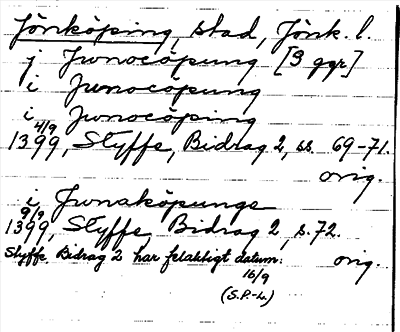 Jönköping, stad, Jönk. l.
j Junocöpung [3 ggr]
i Junocopung
i Junocöping
4/9
1399, Styffe, Bidrag 2, ss. 69-71.
orig.
i Junaköpunge
9/9
1399, Styffe Bidrag 2, s. 72.
Styffe, Bidrag 2 har felaktigt datum: orig.
16/9
(S.P-L.)